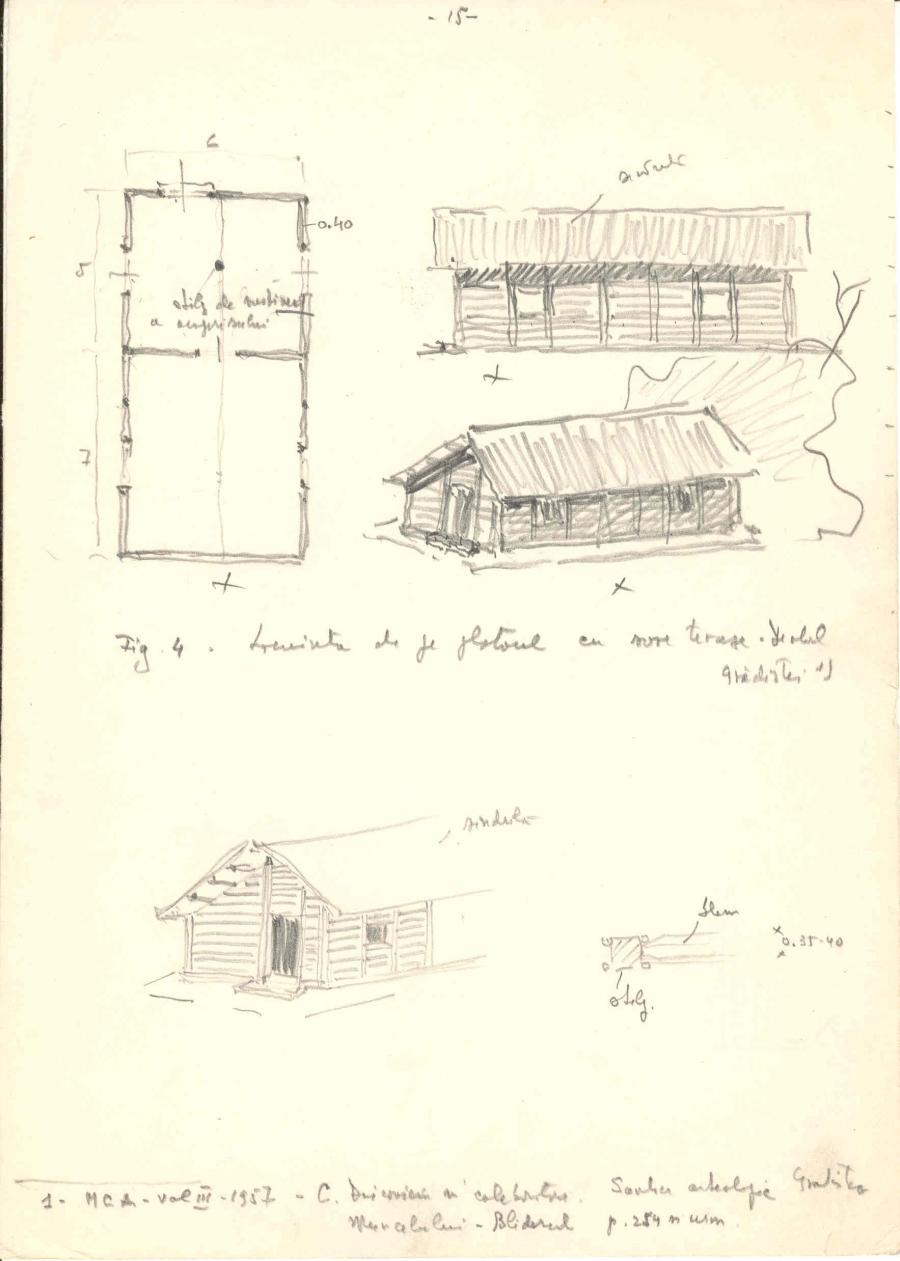 - 15 -
6
sindrilă
0.40
5
stâlp de susținere
a acoperișului
7
Fig. 4. Locuința de pe platoul cu șase terase. Dealul
Grădiștei 1)
sindrilă
lemn
0.35-40
stâlp.
1 - MCA - vol III - 1957 - C. Daicoviciu și colaboratorii. Șantier arheologic Grădiștea
Muncelului - Blidarul p. 254 și urm.